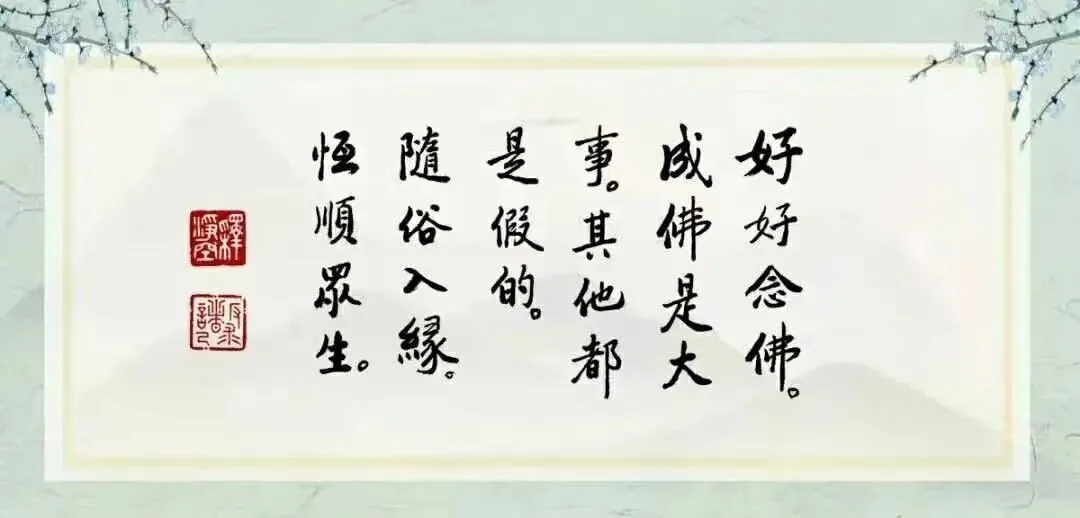 好好念佛。
成佛是大
事。其他都
是假的。
隨俗入緣。
恆順眾生。
釋淨空